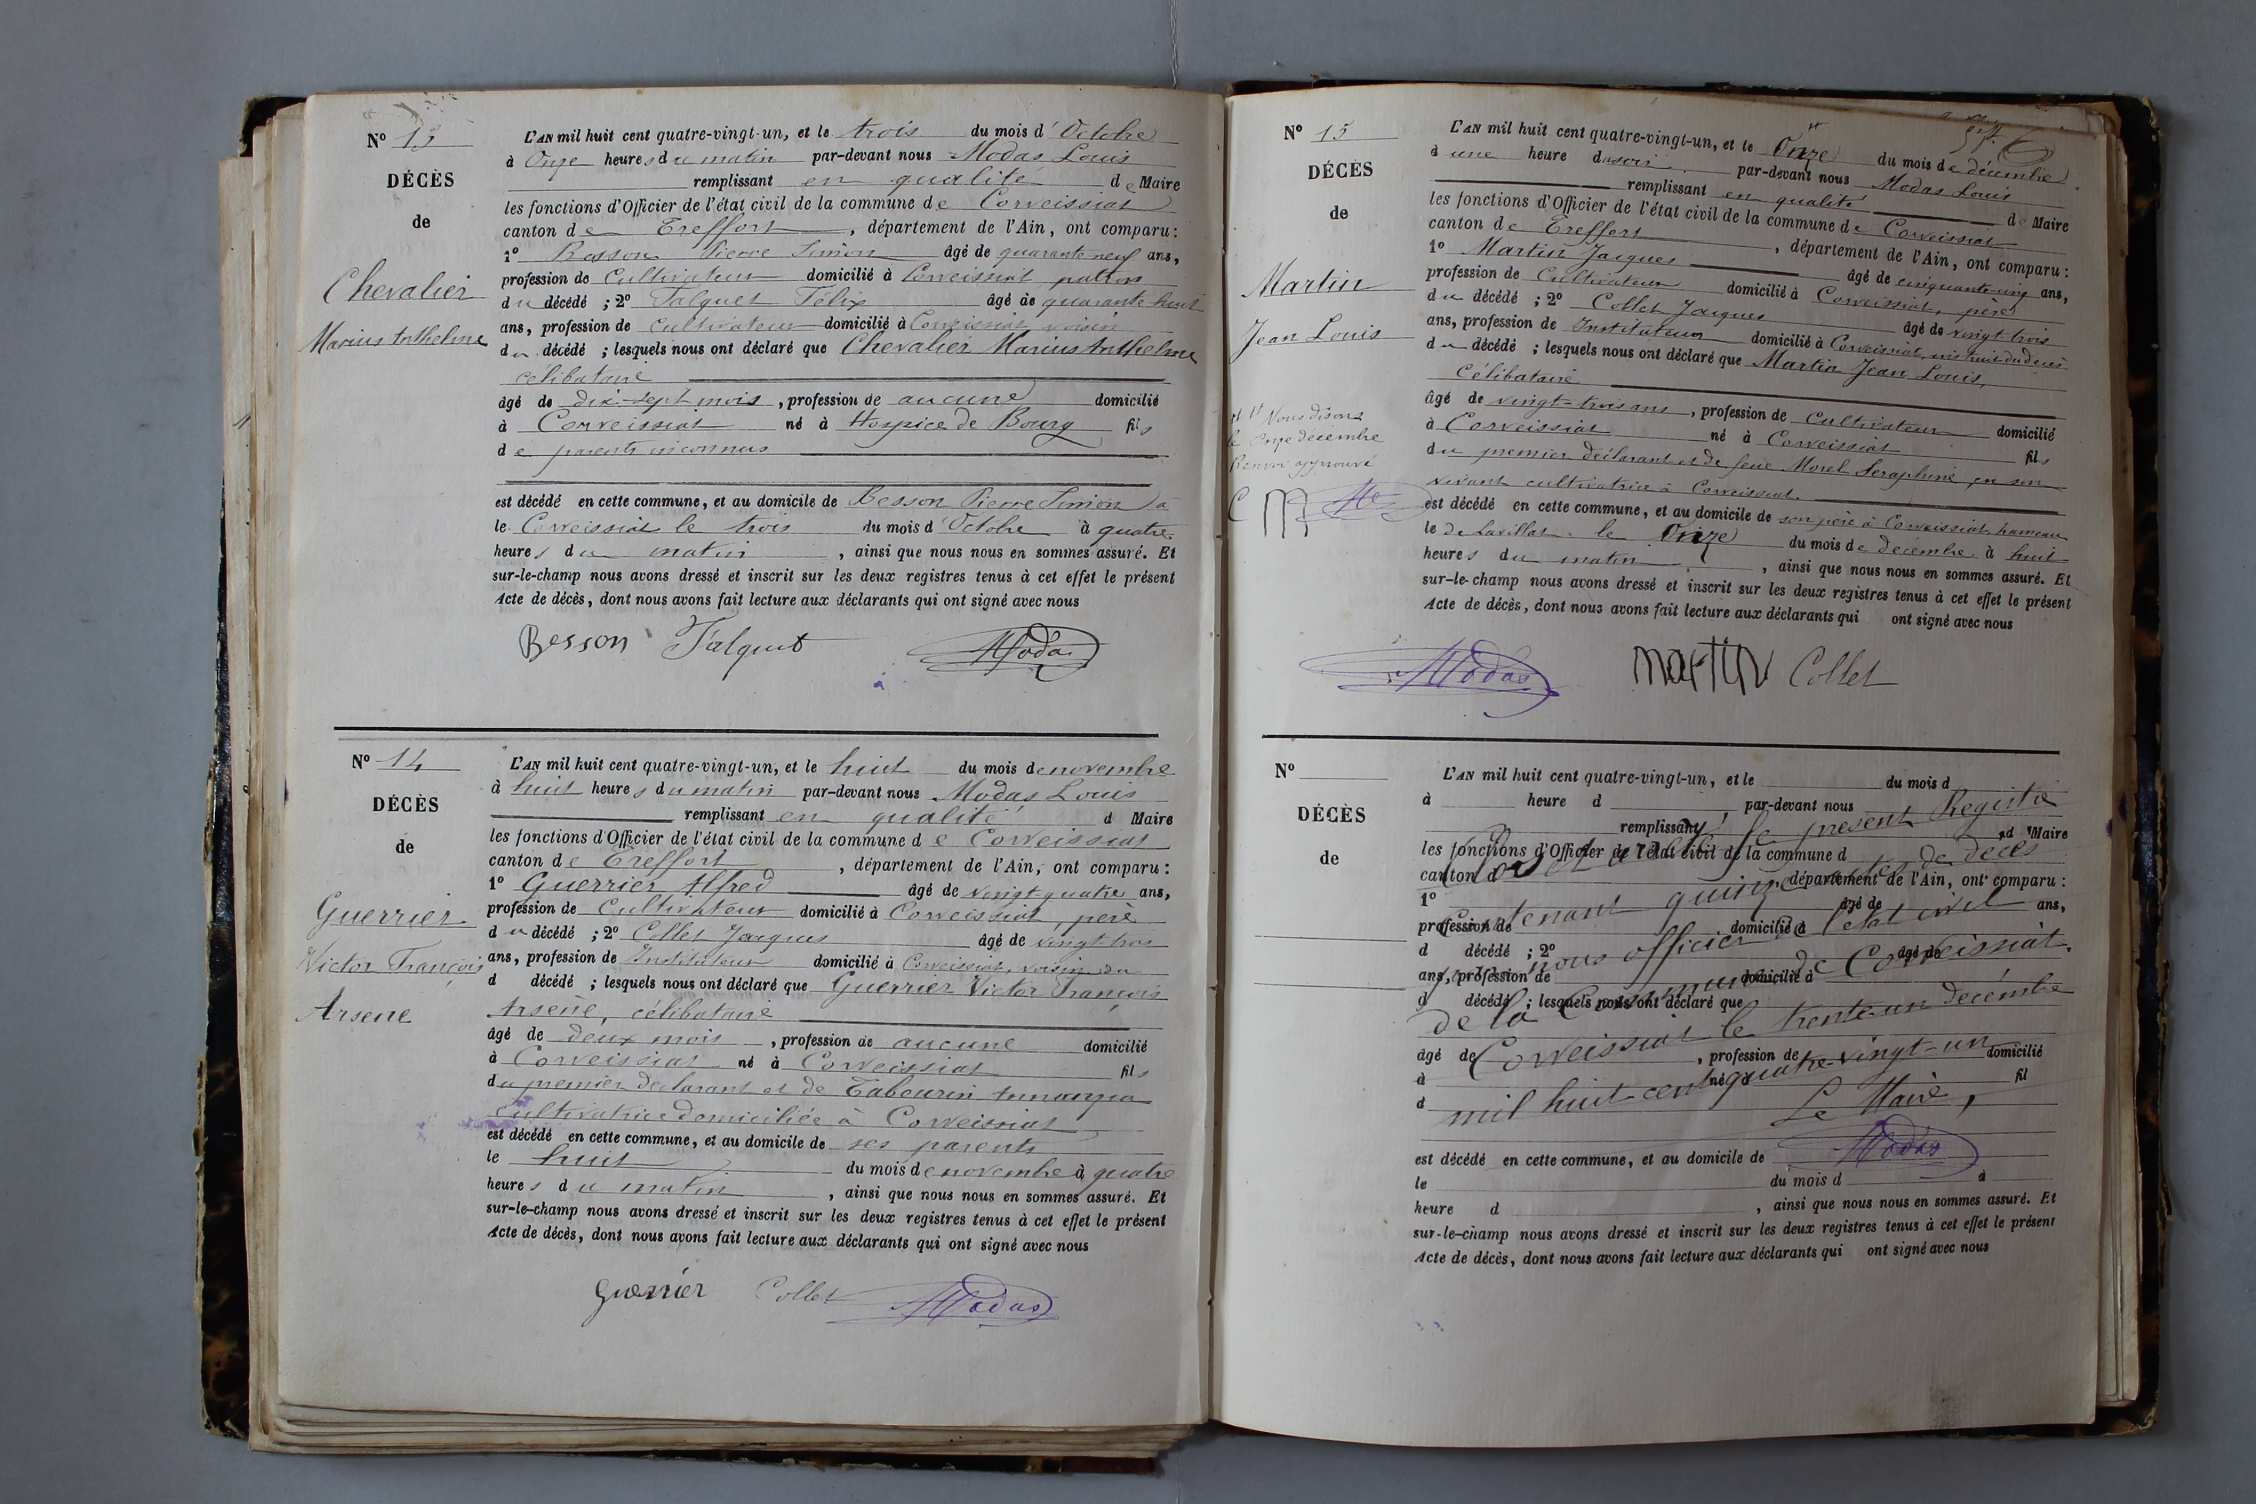 N° 13
DÉCÈS
de
Chevalier
Marius Anthelme
L'AN mil huit cent quatre-vingt-un, et le trois du mois d'Octobre
à Onze heures du matin par-devant nous Modas Louis
remplissant en qualité de Maire
les fonctions d'Officier de l'état civil de la commune de Corveissiat
canton de Treffort, département de l'Ain, ont comparu:
1° Besson Pierre Simon âgé de quarante neuf ans,
profession de Cultivateur domicilié à Corveissiat, patron
du décédé ; 2° Falquet Félix âgé de quarante huit
ans, profession de cultivateur domicilié à Corveissiat voisin
du décédé ; lesquels nous ont déclaré que Chevalier Marius Anthelme
célibataire
âgé de dix-sept mois, profession de aucune domicilié
à Corveissiat né à Hospice de Bourg fils
de parents inconnus
est décédé en cette commune, et au domicile de Besson Pierre Simon à
le Corveissiat le trois du mois d'Octobre à quatre
heures du matin, ainsi que nous nous en sommes assuré. Et
sur-le-champ nous avons dressé et inscrit sur les deux registres tenus à cet effet le présent
Acte de décès, dont nous avons fait lecture aux déclarants qui ont signé avec nous
Besson Falquet Modas
N° 14
DÉCÈS
de
Guerrier
Victor François
Arsene
L'AN mil huit cent quatre-vingt-un, et le huit du mois de novembre
à huit heures du matin par-devant nous Modas Louis
remplissant en qualité d Maire
les fonctions d'Officier de l'état civil de la commune de Corveissiat
canton de Treffort, département de l'Ain, ont comparu:
1° Guerrier Alfred âgé de vingt quatre ans,
profession de Cultivateur domicilié à Corveissiat, père
du décédé ; 2° Collet Jacques âgé de vingt-trois
ans, profession de Instituteur domicilié à Corveissiat, voisin du
d décédé ; lesquels nous ont déclaré que Guerrier Victor François
Arsene, célibataire
âgé de deux mois, profession de aucune domicilié
à Corveissiat né à Corveissiat fils
du premier déclarant et de Tabourin
cultivatrice domiciliée à Corveissiat
est décédé en cette commune, et au domicile de ses parents
le huit du mois de novembre à quatre
heures du matin, ainsi que nous nous en sommes assuré. Et
sur-le-champ nous avons dressé et inscrit sur les deux registres tenus à cet effet le présent
Acte de décès, dont nous avons fait lecture aux déclarants qui ont signé avec nous
Guerrier Collet Modas
N° 15
DÉCÈS
de
Martin
Jean Louis
Nous disons
le onze décembre
Renvoi approuvé
C M Mo
L'AN mil huit cent quatre-vingt-un, et le Onze du mois de décembre
à une heure du soir par-devant nous Modas Louis
remplissant en qualité de Maire
les fonctions d'Officier de l'état civil de la commune de Corveissiat
canton de Treffort, département de l'Ain, ont comparu:
1° Martin Jacques âgé de cinquante-cinq ans,
profession de Cultivateur domicilié à Corveissiat, père
du décédé ; 2° Collet Jacques âgé de vingt-trois
ans, profession de Instituteur domicilié à Corveissiat,
du décédé ; lesquels nous ont déclaré que Martin Jean Louis,
Célibataire
âgé de vingt-trois ans, profession de Cultivateur domicilié
à Corveissiat né à Corveissiat fils
du premier déclarant et de feue Morel Seraphine, en son
vivant cultivatrice à Corveissiat.
est décédé en cette commune, et au domicile de son père à Corveissiat, hameau
le de Lavillat, le Onze du mois de décembre à huit
heures du matin, ainsi que nous nous en sommes assuré. Et
sur-le-champ nous avons dressé et inscrit sur les deux registres tenus à cet effet le présent
Acte de décès, dont nous avons fait lecture aux déclarants qui ont signé avec nous
Modas Martin Collet
N°
DÉCÈS
de
L'AN mil huit cent quatre-vingt-un, et le du mois d
à heure d par-devant nous
remplissant d Maire
les fonctions d'Officier de l'état civil de la commune d
canton d , département de l'Ain, ont comparu:
1° âgé de ans,
profession de domicilié à
d décédé ; 2° âgé de
ans, profession de domicilié à
d décédé ; lesquels nous ont déclaré que
âgé de , profession de domicilié
à né à fil
d
Clos et arrêté le présent Registre
contenant quinze actes de décès
par nous officier de l'état civil
de la Commune de Corveissiat.
Corveissiat le trente-un décembre
mil huit cent quatre-vingt-un
Le Maire,
Modas
est décédé en cette commune, et au domicile de
le du mois d à
heure d , ainsi que nous nous en sommes assuré. Et
sur-le-champ nous avons dressé et inscrit sur les deux registres tenus à cet effet le présent
Acte de décès, dont nous avons fait lecture aux déclarants qui ont signé avec nous